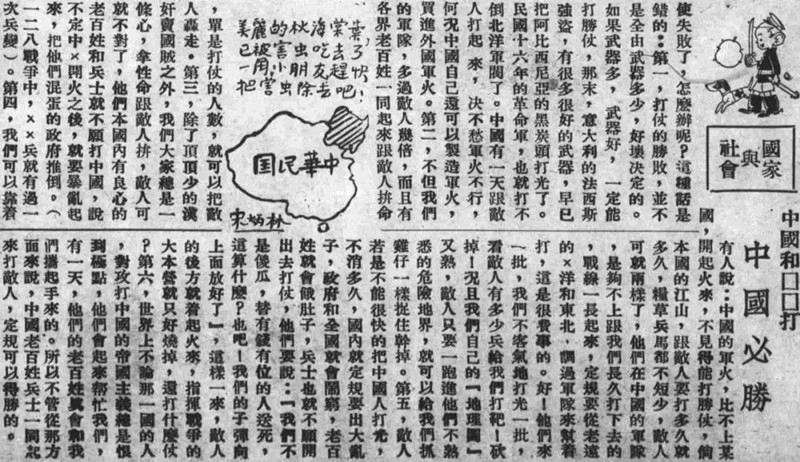 國家與社會
中國和□□打
中國必勝
有人說:中國的軍火,比不上某
國,開起火來,不見得能打勝仗,倘
使失敗了,怎麼辦呢?這種話是
錯的:第一,打仗的勝敗,並不
是全由武器多少,好壞決定的。
如果武器多,武器好,一定能
打勝仗,那末,意大利的法西斯
強盜,有很多很好的武器,早已
把阿比西尼亞的黑炭頭打光了。
民國十六年的革命軍,也就打不
倒北洋軍閥了。中國有一天跟敵
人打起來,決不愁軍火不行,
何况中國自己還可以製造軍火,
買進外國軍火。第二,不但我們
的軍隊,多過敵人幾倍,而且有
各界老百姓一同起來跟敵人拚命
,單是打仗的人數,就可以把敵
人轟走。第三,除了頂頂少的漢
奸賣國賊之外,我們大家總是一
條心,拿性命跟敵人拚,敵人可
就不對了,他們本國內有良心的
老百姓和兵士就不願打中國,說
不定中×開火之後,就要暴亂起
來,把他們混蛋的政府推倒。(
一二八戰爭中,××兵就有過一
次兵變)。第四,我們可以靠着
本國的江山,跟敵人要打多久就
多久,糧草兵馬都不短少,敵人
可就兩樣了,他們在中國的軍隊
,是夠不上跟我們長久打下去的
,戰線一長起來,定規要從老遠
的×洋和東北,調過軍隊來幫着
打,這是很費事的。好!他們來
一批,我們不客氣地打光一批,
看敵人有多少兵給我們打靶!砍
掉!况且我們自己的『地理圖』
又熟,敵人只要一跑進他們不熟
悉的危險地界,就可以給我們抓
雞仔一樣捉住幹掉。第五,敵人
若是不能很快的把中國人打光,
不消多久,國內就定規要出大亂
子,政府和全國就會鬧窮,老百
姓就會餓肚子,兵士也就不願開
出去打仗,他們要說:『我們不
是傻瓜,替有錢有位的人送死,
這算什麼?也吧!我們的子彈向
上面放好了』,這樣一來,敵人
的後方就着起火來,指揮戰爭的
大本營就只好燒掉,還打什麼仗
?第六,世界上不論那一國的人
,對攻打中國的帝國主義總是恨
到極點,他們會起來幫忙我們,
有一天,他們的老百姓真會和我
們攜起手來的。所以不管從那方
面來說,中國老百姓兵士一同起
來打敵人,定規可以得勝的。
美麗的秋海棠葉,
已被害虫吃去了
一角,朋友趕快
把害虫除去吧!
中華民國
宋炳林